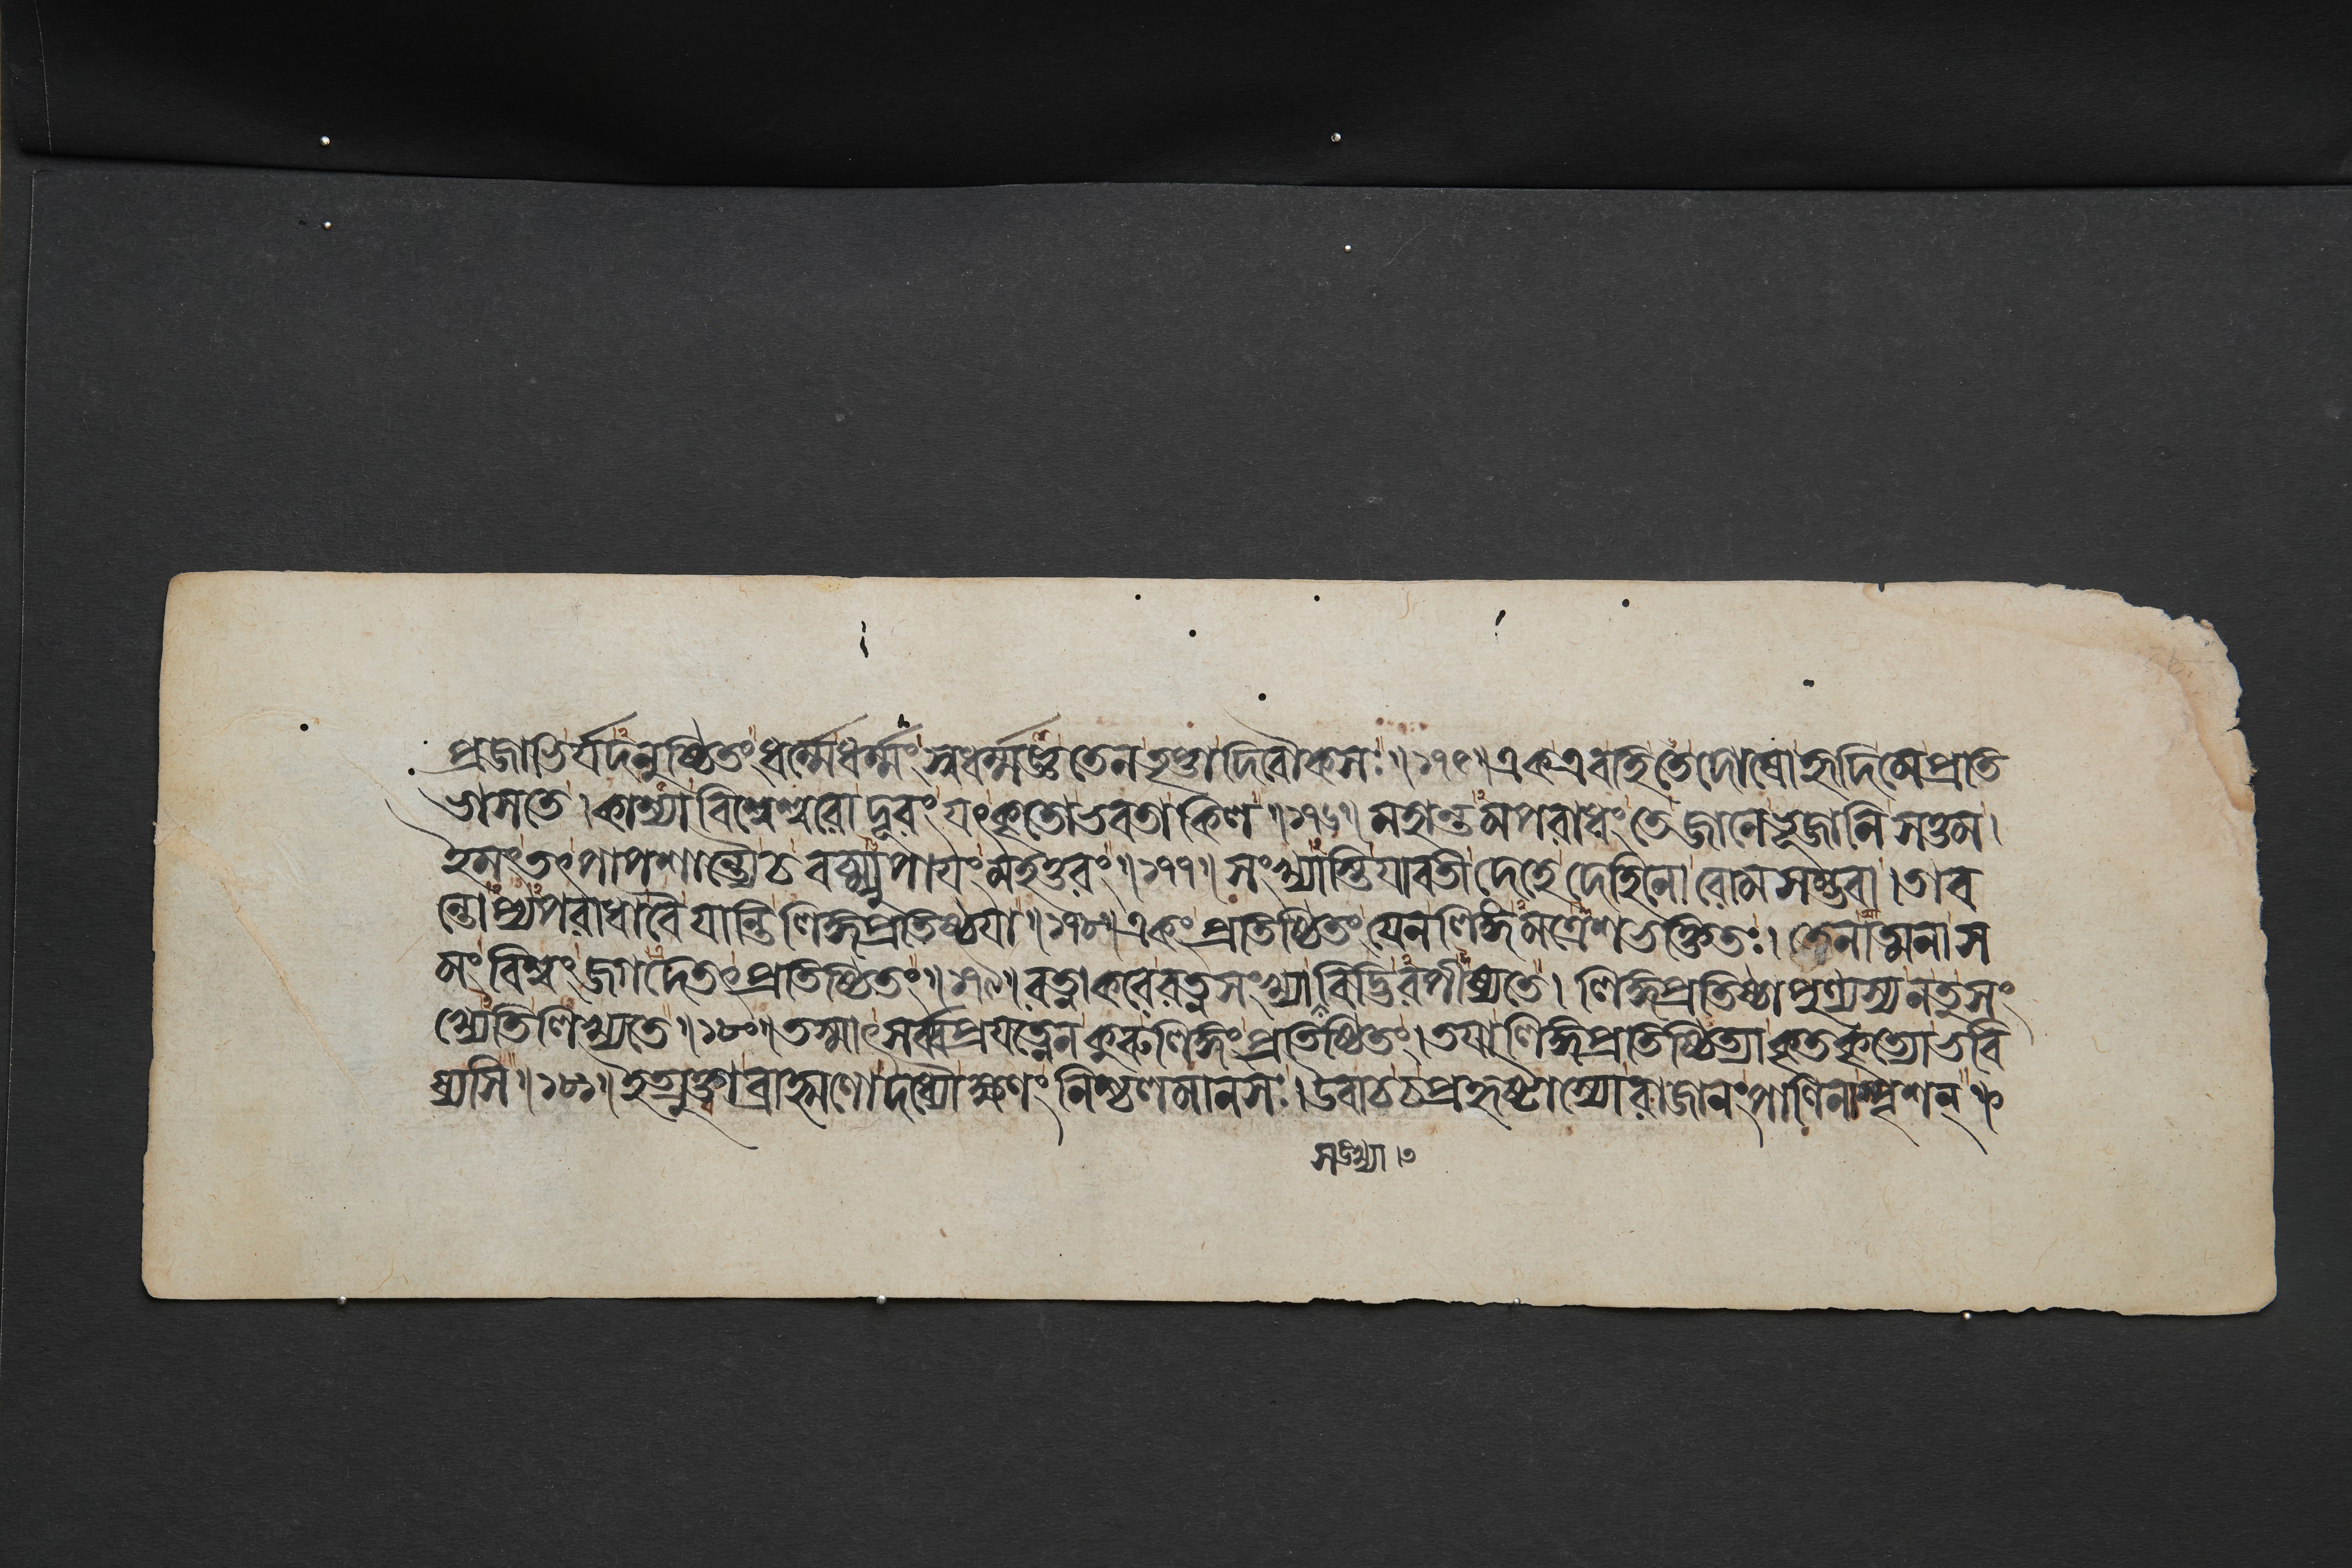 প্রজাভির্যদনুষ্ঠিতংধর্ম্মেধর্ম্মংস্বধর্ম্মজ্ঞ তেনতৃপ্তাদিবৌকসঃ॥১৭৫॥একএবাহিতেদোষোহৃদিমেপ্রতি
ভাসতে।কাশ্যাবিশ্বেশ্বরোদূরংযৎকৃতোভবতাকিল॥১৭৬॥মহান্তমপরাধংতেজানেভূজানিসত্তম।
ইমংতৎপাপশান্ত্যৈচবচ্ম্যুপাযংমহত্তরং॥১৭৭॥সংখ্যাস্তিযাবতীদেহেদেহিনোরোমসম্ভবা।তাব
ন্তোপ্যপরাধাবৈযান্তিলিঙ্গপ্রতিষ্ঠযা॥১৭৮॥একংপ্রতিষ্ঠিতংযেনলিঙ্গমত্রেশভক্তিতঃ।তেনাত্মনাস
মংবিশ্বংজগদেতৎপ্রতিষ্ঠিতং॥১৭৯॥রত্নাকরেরত্নসংখ্যাবিদ্ভিরপীষ্যতে।লিঙ্গপ্রতিষ্ঠাপুণ্যস্যনতুসং
খ্যেতিলিখ্যতে॥১৮০॥তস্মাৎসর্ব্বপ্রযত্নেনকুরুলিঙ্গংপ্রতিষ্ঠিতং।তযালিঙ্গপ্রতিষ্ঠিত্যাকৃতকৃত্যোভবি
ষ্যসি॥১৮১॥ইত্যুক্ত্বাব্রাহ্মণোদধ্যৌক্ষণংনিশ্চলমানসঃ।উবাচচপ্রহৃষ্টাস্যোরাজানংপাণিনাস্পৃশন্
সংখ্যা।৩